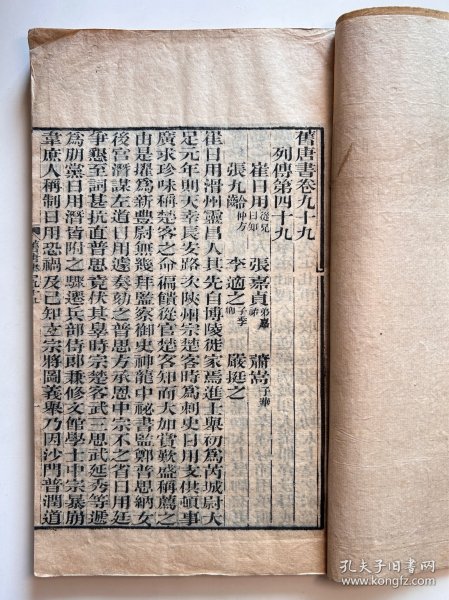 舊唐書卷九十九
列傳第四十九
崔日用 從兄日知 張嘉貞 弟嘉祐 蕭嵩 子華
張九齡 仲方 李適之 子季卿 嚴挺之
崔日用滑州靈昌人其先自博陵徙家焉進士舉初為芮城尉大
足元年則天幸長安路次陝州宗楚客時為刺史日用支供頓事
廣求珍味稱楚客之命徧饋從官楚客知而大加賞歎盛稱薦之
由是擢為新豐尉無幾拜監察御史神龍中祕書監鄭普思納女
後宮潛謀左道日用遽奏劾之普思方承恩中宗不之省日用廷
爭懇至詞甚抗直普思竟伏其辜時宗楚客武三思武延秀等遞
為朋黨日用潛皆附之驟遷兵部侍郎兼修文館學士中宗暴崩
韋庶人稱制日用恐禍及己知玄宗將圖義舉乃因沙門普潤道
孔夫子旧书网
www.kongfz.com